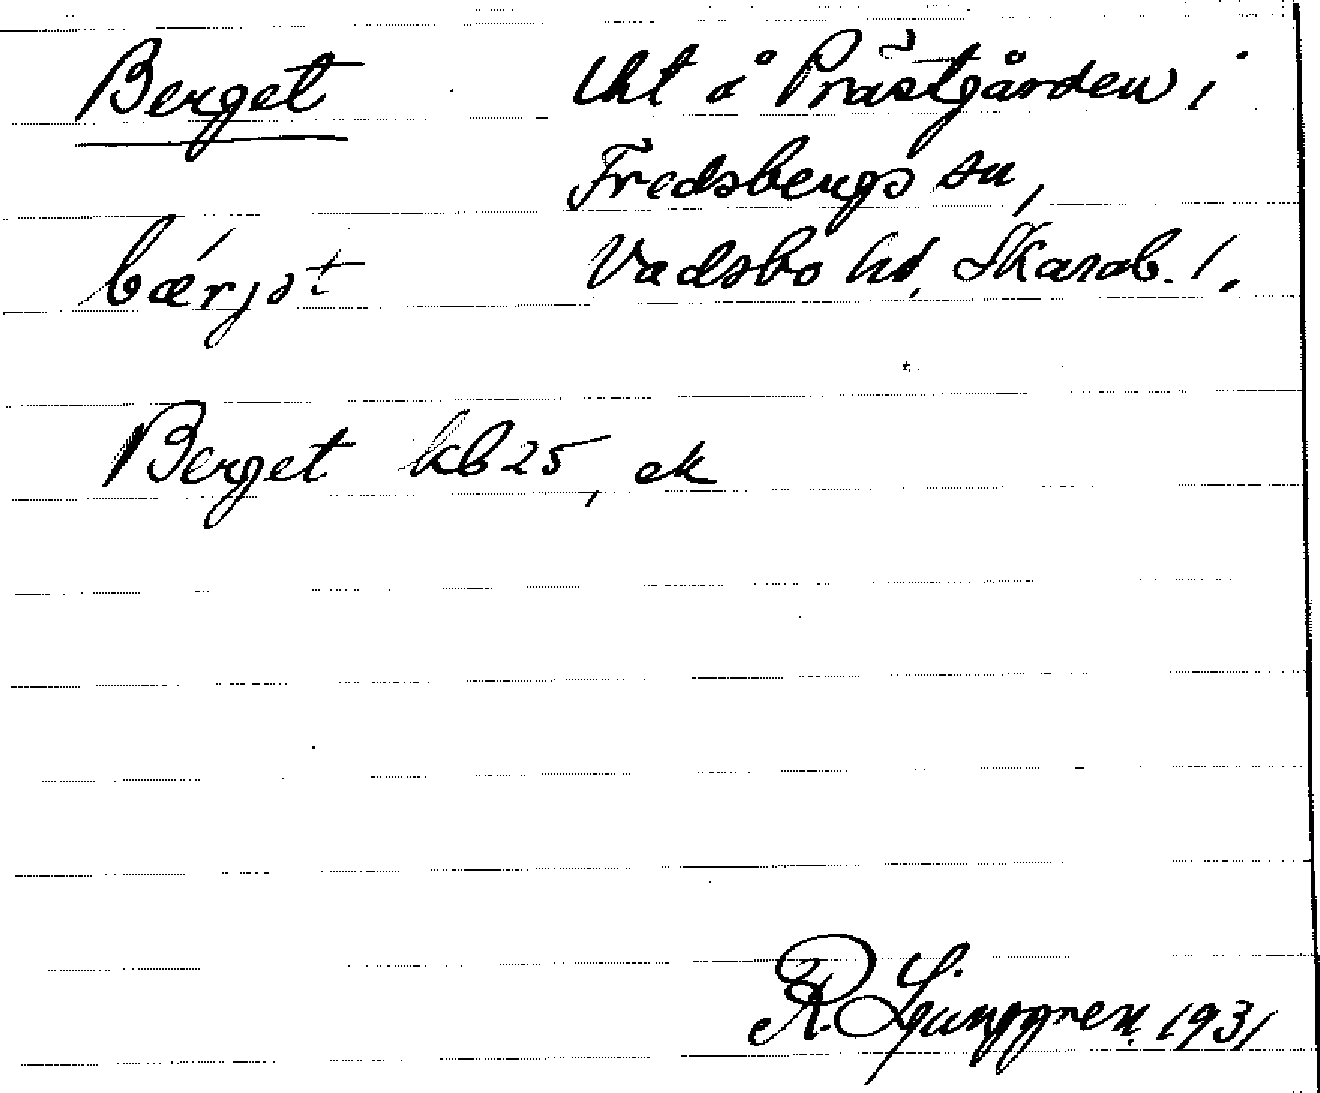 Berget
bærjət
Lht å Prästgården i
Fredsbergs sn,
Vadsbo hd, Skarab. l.
Berget kb 25, ek
R. Ljunggren 1931